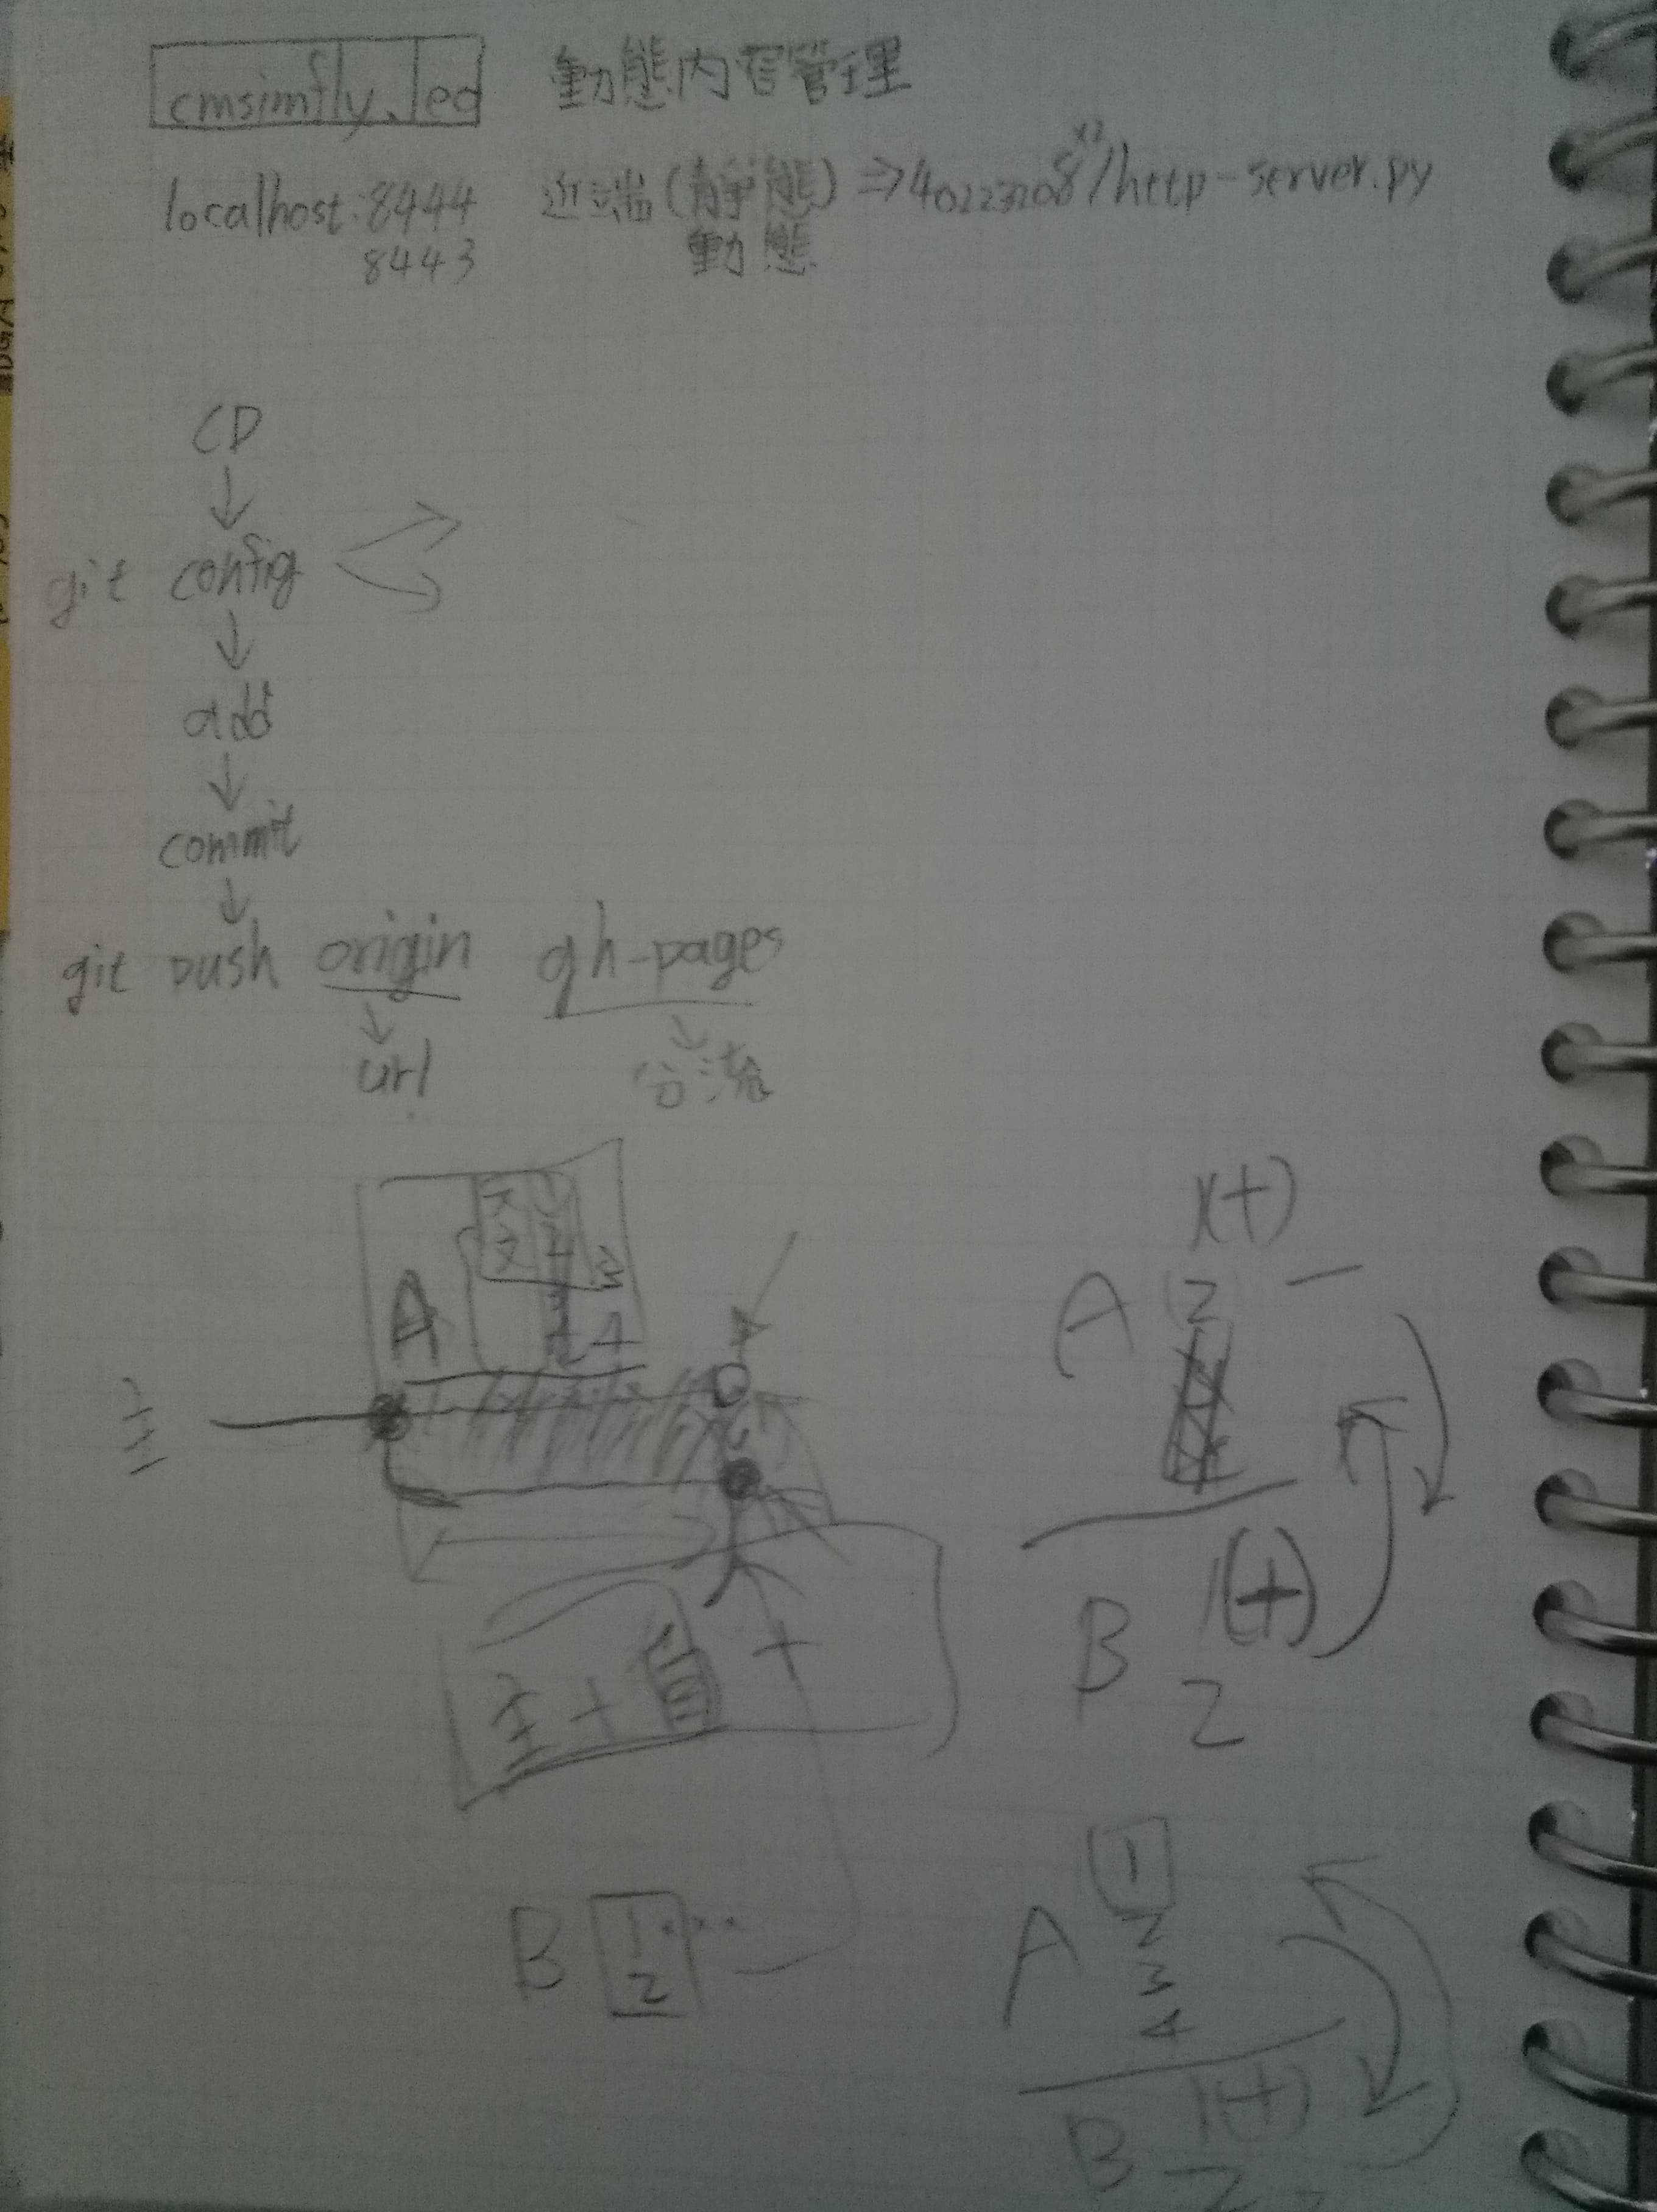 cmsimfly. leo 動態內容管理
localhost:8444 近端(靜態) ⇒ /http-server.py
8443 動態
CD
↓
git config
↓
add
↓
commit
↓
git push origin gh-pages
↓ ↓
url
A
主
主+自 +
B 1
2
A 2
B 1(+)
2
A 1
2
3
4
B 1(+)
2